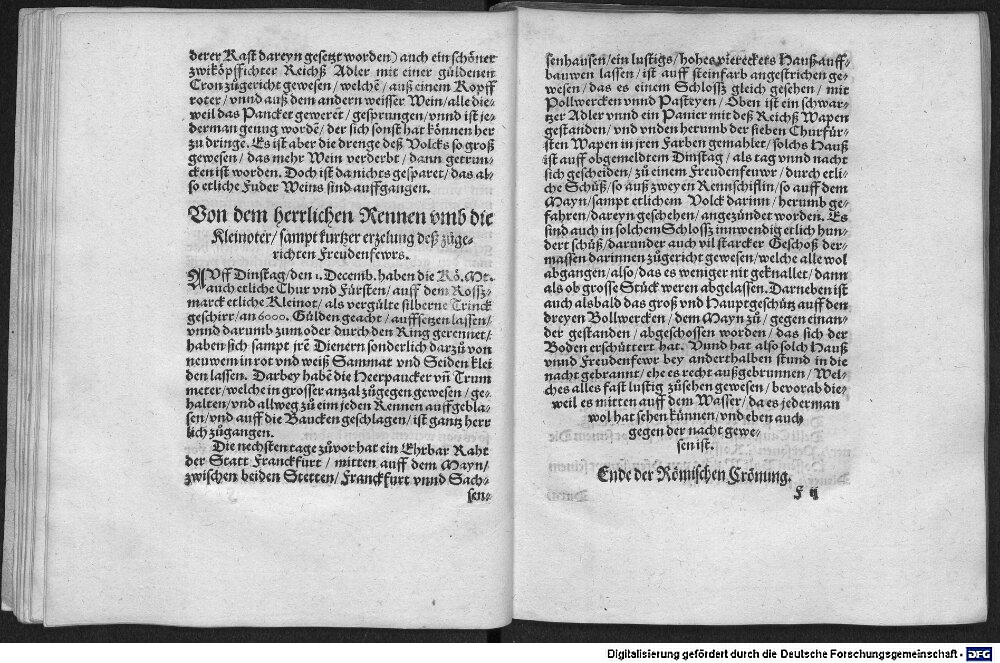 derer Kast dareyn gesetzt worden) auch ein schöner
zwiköpffichter Reichß Adler mit einer güldenen
Cron zůgericht gewesen / welchẽ / auß einem Kopff
roter / vnnd auß dem andern weisser Wein / alle die-
weil das Pancket gewerẽt / gesprungen / vnnd ist je-
derman genug wordẽ / der sich sonst hat können her
zu dringe. Es ist aber die drenge deß Volcks so groß
gewesen / das mehr Wein verderbt / dann getrun-
cken ist worden. Doch ist da nichts gesparet / das al-
so etliche Fuder Weins sind auffgangen.
Von dem herrlichen Rennen vmb die
Kleinoter / sampt kurtzer erzelung deß zůge-
richten Freudenfewrs.
AVff Dinstag / den 1. Decemb. haben die Kö. Mt.
auch etliche Chur vnd Fürsten / auff dem Rossz-
marck etliche Kleinot / als vergülte silberne Trinck
geschirr / an 6000. Gülden geacht / auffsetzen lassen /
vnnd darumb zum oder durch den Ring gerennet /
haben sich sampt irẽ Dienern sonderlich darzů von
neuwem in rot vnd weiß Sammat vnd Seiden klei
den lassen. Darbey habẽ die Heerpaucker vñ Trum
meter / welche in grosser anzal zůgegen gewesen / ge-
halten / vnd allweg zů eim jeden Rennen auffgebla-
sen / vnd auff die Baucken geschlagen / ist gantz herr
lich zůgangen.
Die nechsten tage zůvor hat ein Ehrbar Raht
der Statt Franckfurt / mitten auff dem Mayn /
zwischen beiden Stetten / Franckfurt vnnd Sach-
sen-
senhausen / ein lustigs / hohes viereckets Hauß auff-
bauwen lassen / ist auff steinfarb angestrichen ge-
wesen / das es einem Schlossz gleich gesehen / mit
Pollwercken vnnd Pasteyen / Oben ist ein schwar-
tzer Adler vnnd ein Panier mit deß Reichß Wapen
gestanden / vnd vnden herumb der sieben Churfür-
sten Wapen in jren Farben gemahlet / solchs Hauß
ist auff obgemeldtem Dinstag / als tag vnnd nacht
sich gescheiden / zu einem Freudenfeuwr / durch etli-
che Schüß / so auß zweyen Rennschiflin / so auff dem
Mayn / sampt etlichem Volck darinn / herumb ge-
fahren / dareyn geschehen / angezündet worden. Es
sind auch in solchem Schlossz innwendig etlich hun-
dert schüß / darunder auch vil starcker Geschoß der-
massen darinnen zůgericht gewesen / welche alle wol
abgangen / also / das es weniger nit geknallet / dann
als ob grosse Stück weren abgelassen. Darneben ist
auch alsbald das groß vnd Hauptgeschütz auff den
dreyen Bollwercken / dem Mayn zů / gegen einan-
der gestanden / abgeschossen worden / das sich der
Boden erschüttert hat. Vund hat also solch Hauß
vnnd Freudenfewr bey anderthalben stund in die
nacht gebrannt / ehe es recht außgebrunnen / Wel-
ches alles fast lustig zůsehen gewesen / bevorab die-
weil es mitten auff dem Wasser / da es jederman
wol hat sehen künnen / vnd eben auch
gegen der nacht gewe-
sen ist.
Ende der Römischen Crönung.
F ij
Digitalisierung gefördert durch die Deutsche Forschungsgemeinschaft - DFG